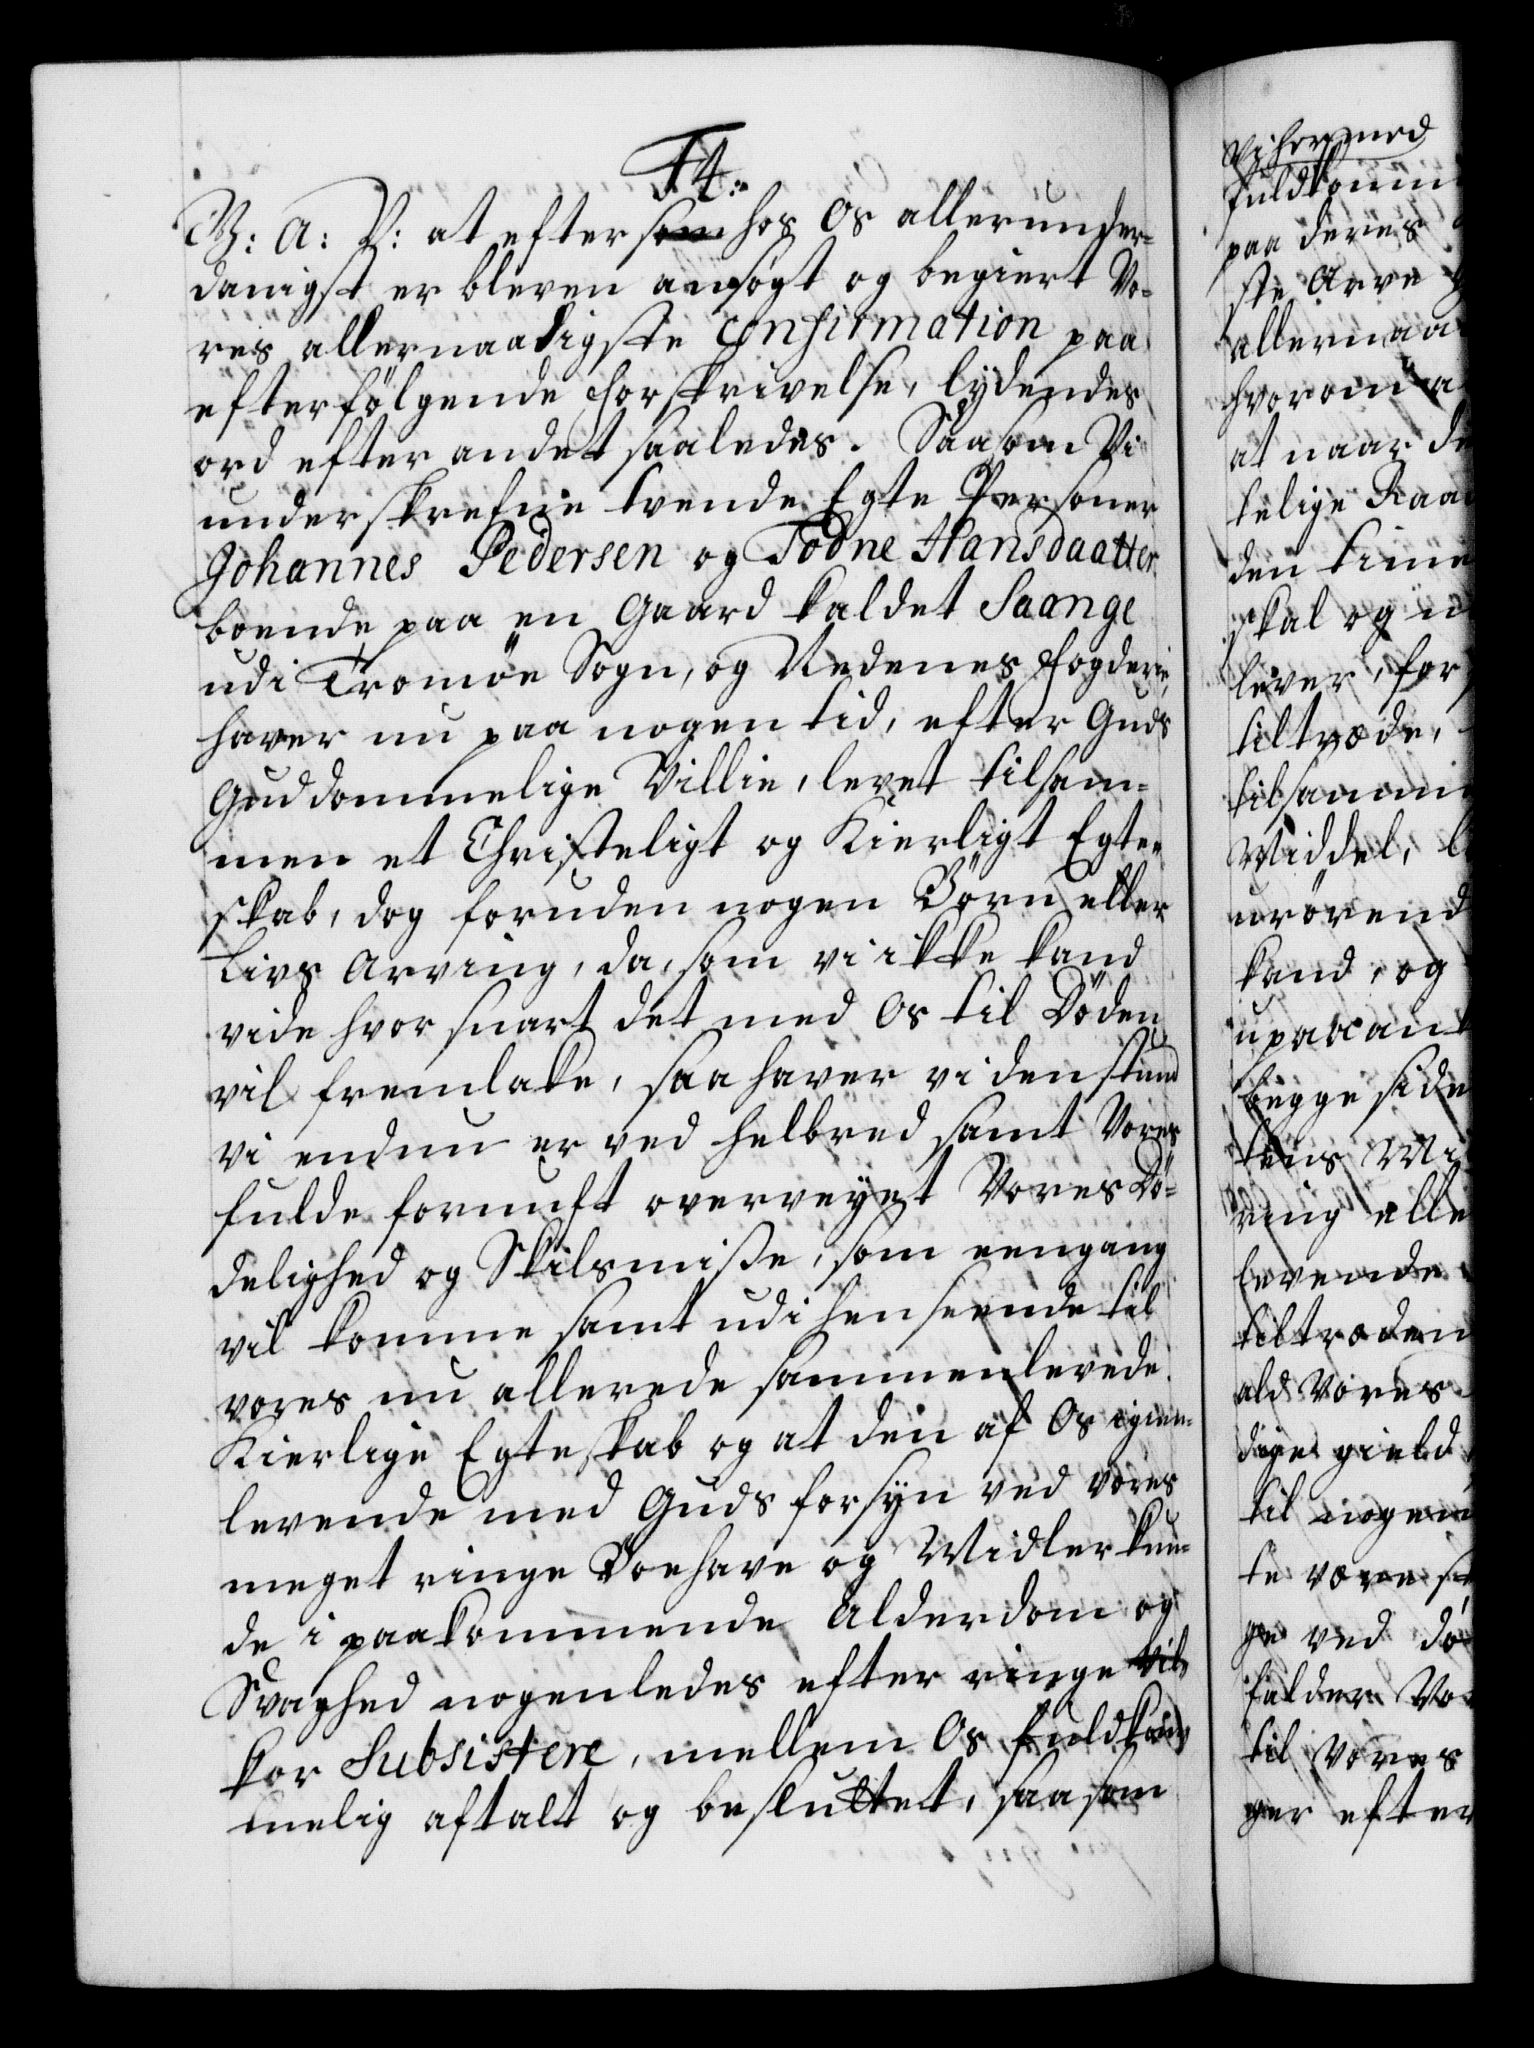 F4:
W: A: V: at efter som hos Os allerunder-
danigst er bleven ansögt og begiert Vo-
res allernaadigste Confirmation paa
efterfölgende forskrivelse, lydendes
ord efter andet saaledes. Saasom Vi
underskrefne tvende Egte Personer
Johannes Pedersen og Todne Hansdaatter
boende paa en Gaard kaldet Saange
udi Tromöe Sogn, og Nedenes fogderie,
haver nu paa nogen tid, efter Guds
Guddommelige Villie, levet tilsam-
men et Christeligt og Kierligt Egte-
skab, dog foruden nogen Börn eller
Livs Arving, da, som vi ikke kand
vide hvor snart det med Os til Döden
vil fremlake, saa haver vi den stund
vi endnu er ved helbred samt Vores
fulde fornuft overveyet Vores Dö-
delighed og Skilsmisse, som eengang
vil komme samt udi henseende til
vores nu allerede sammenlevede
Kierlige Egteskab og at den af Os igien-
levende med Guds forsyn ved vores
meget ringe Boehave og Midler kun-
de i paakommende Alderdom og
Svaghed nogenledes efter ringe Vil-
kor Subsistere, mellem Os fuldkom-
melig aftalt og besluttet, saasom
Vi hermed
fuldkomm
paa deres
ste Arve
allernaa
hvorom a
at naar de
telige Raa
den time
skal og
lever, for
tiltræde,
tilsamm
Middel,
urörend
kand, og
upaaant
begge side
tens Mi
ring elle
levende
tiltræden
ald Vores
dige gield
til nogen
te være
ge ved dö
falder Vo
til Vores
ger efter